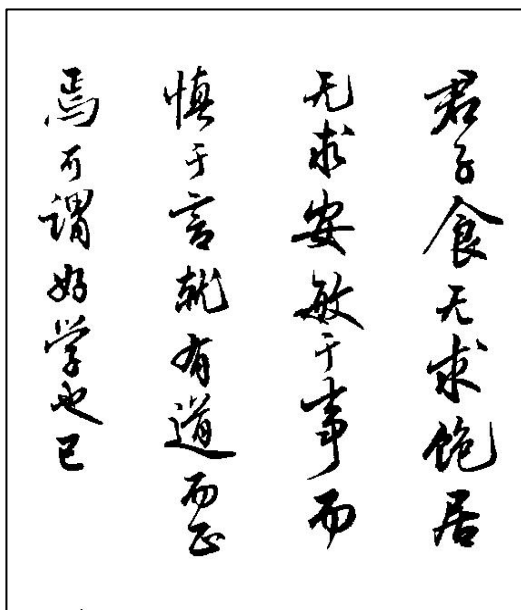 君子食无求饱居
无求安敏于事而
慎于言就有道而正
焉可谓好学也已